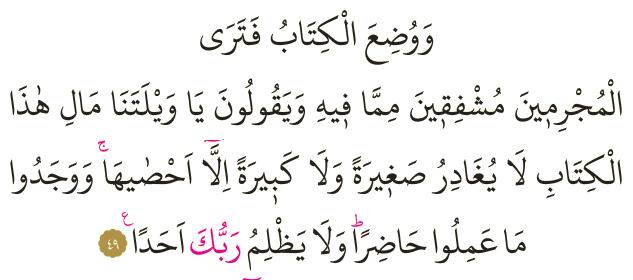 وَوُضِعَ الْكِتَابُ فَتَرَى
الْمُجْرِمٖينَ مُشْفِقٖينَ مِمَّا فٖيهِ وَيَقُولُونَ يَا وَيْلَتَنَا مَالِ هٰذَا
الْكِتَابِ لَا يُغَادِرُ صَغٖيرَةً وَلَا كَبٖيرَةً اِلَّٓا اَحْصٰيهَاۚ وَوَجَدُوا
مَا عَمِلُوا حَاضِرًاؕ وَلَا يَظْلِمُ رَبُّكَ اَحَدًاࣖ ﴿٤٩﴾